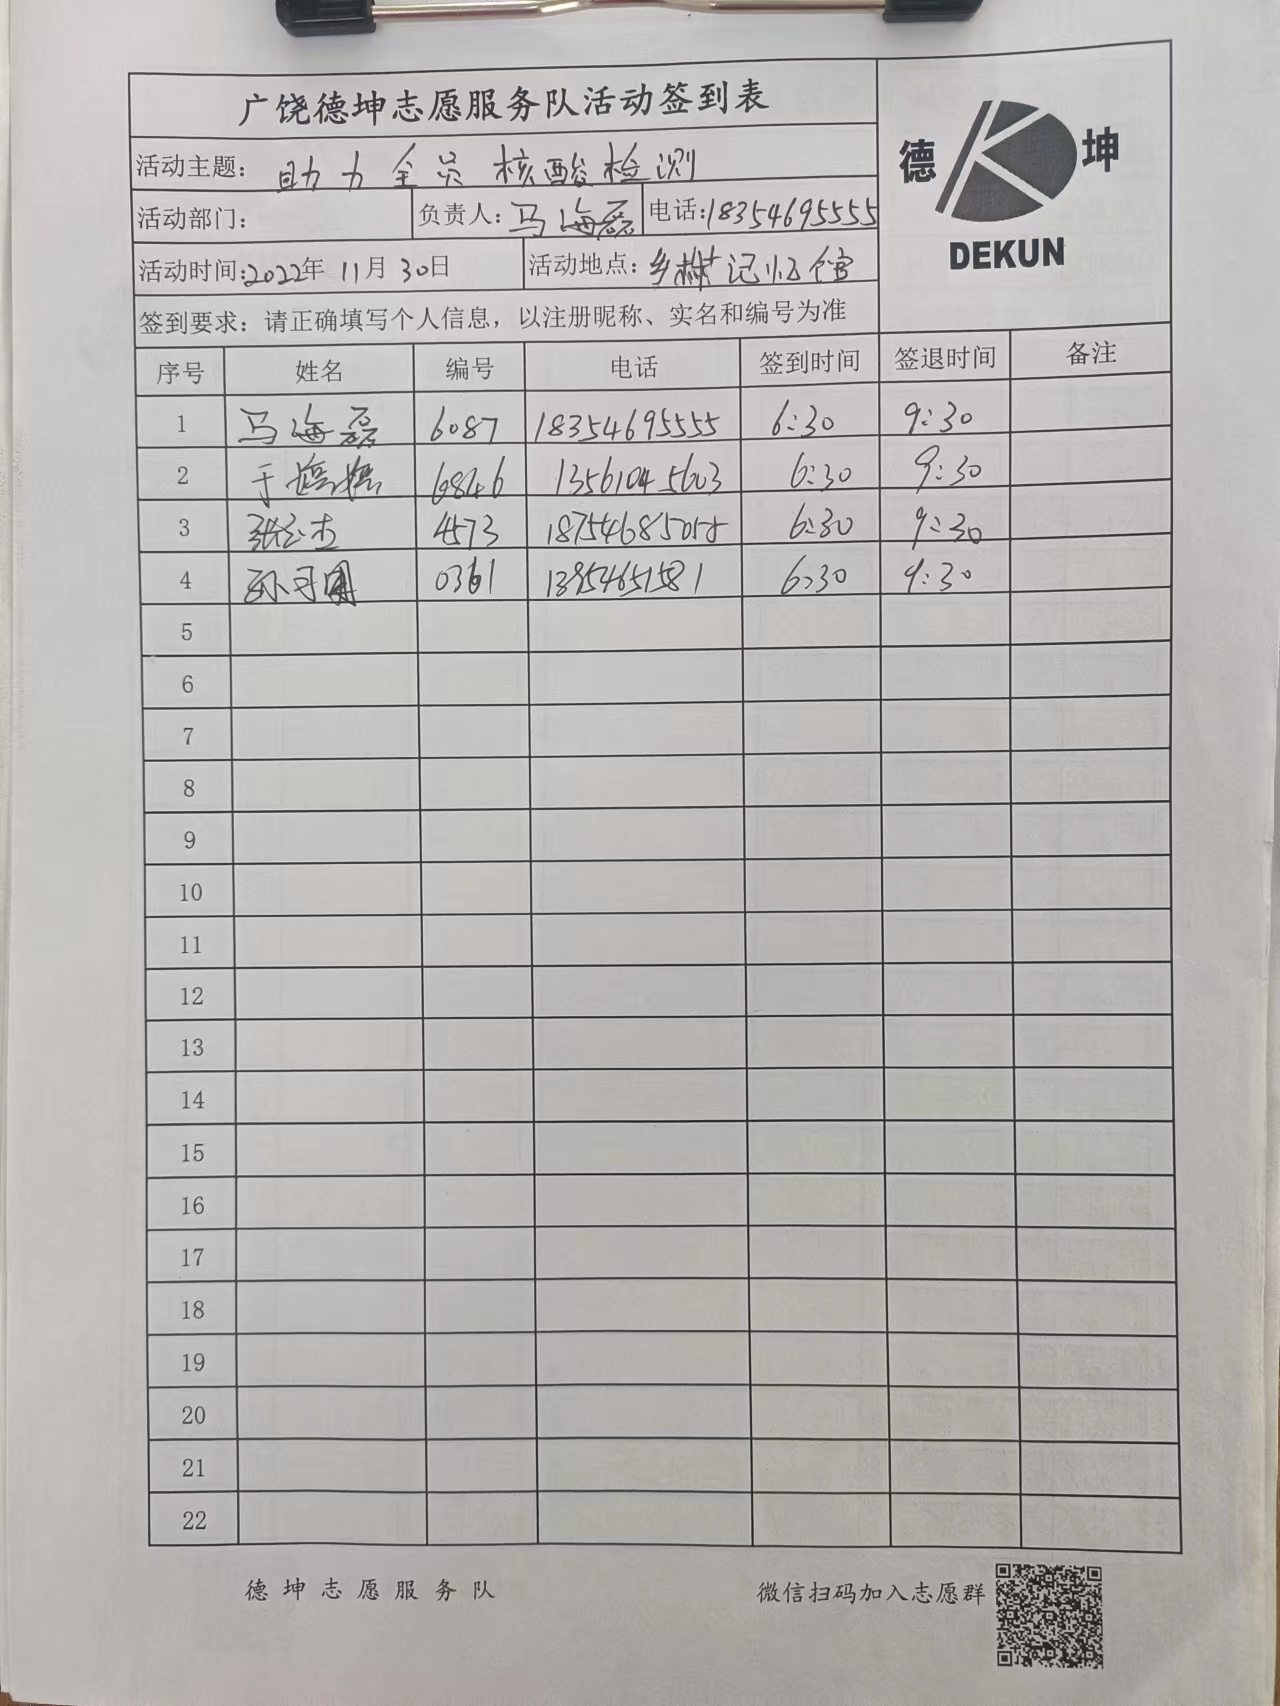 广饶德坤志愿服务队活动签到表
德 坤
DEKUN
活动主题: 助力全员核酸检测
活动部门: 负责人: 马海磊 电话: 18354695555
活动时间: 2022年 11月 30日 活动地点: 乡村记忆馆
签到要求: 请正确填写个人信息，以注册昵称、实名和编号为准
序号 姓名 编号 电话 签到时间 签退时间 备注
1 马海磊 6087 18354695555 6:30 9:30
2 于 6846 13561045603 6:30 9:30
3 张 杰 4573 6:30 9:30
4 孙 0361 13954651581 6:30 9:30
5
6
7
8
9
10
11
12
13
14
15
16
17
18
19
20
21
22
德坤志愿服务队 微信扫码加入志愿群